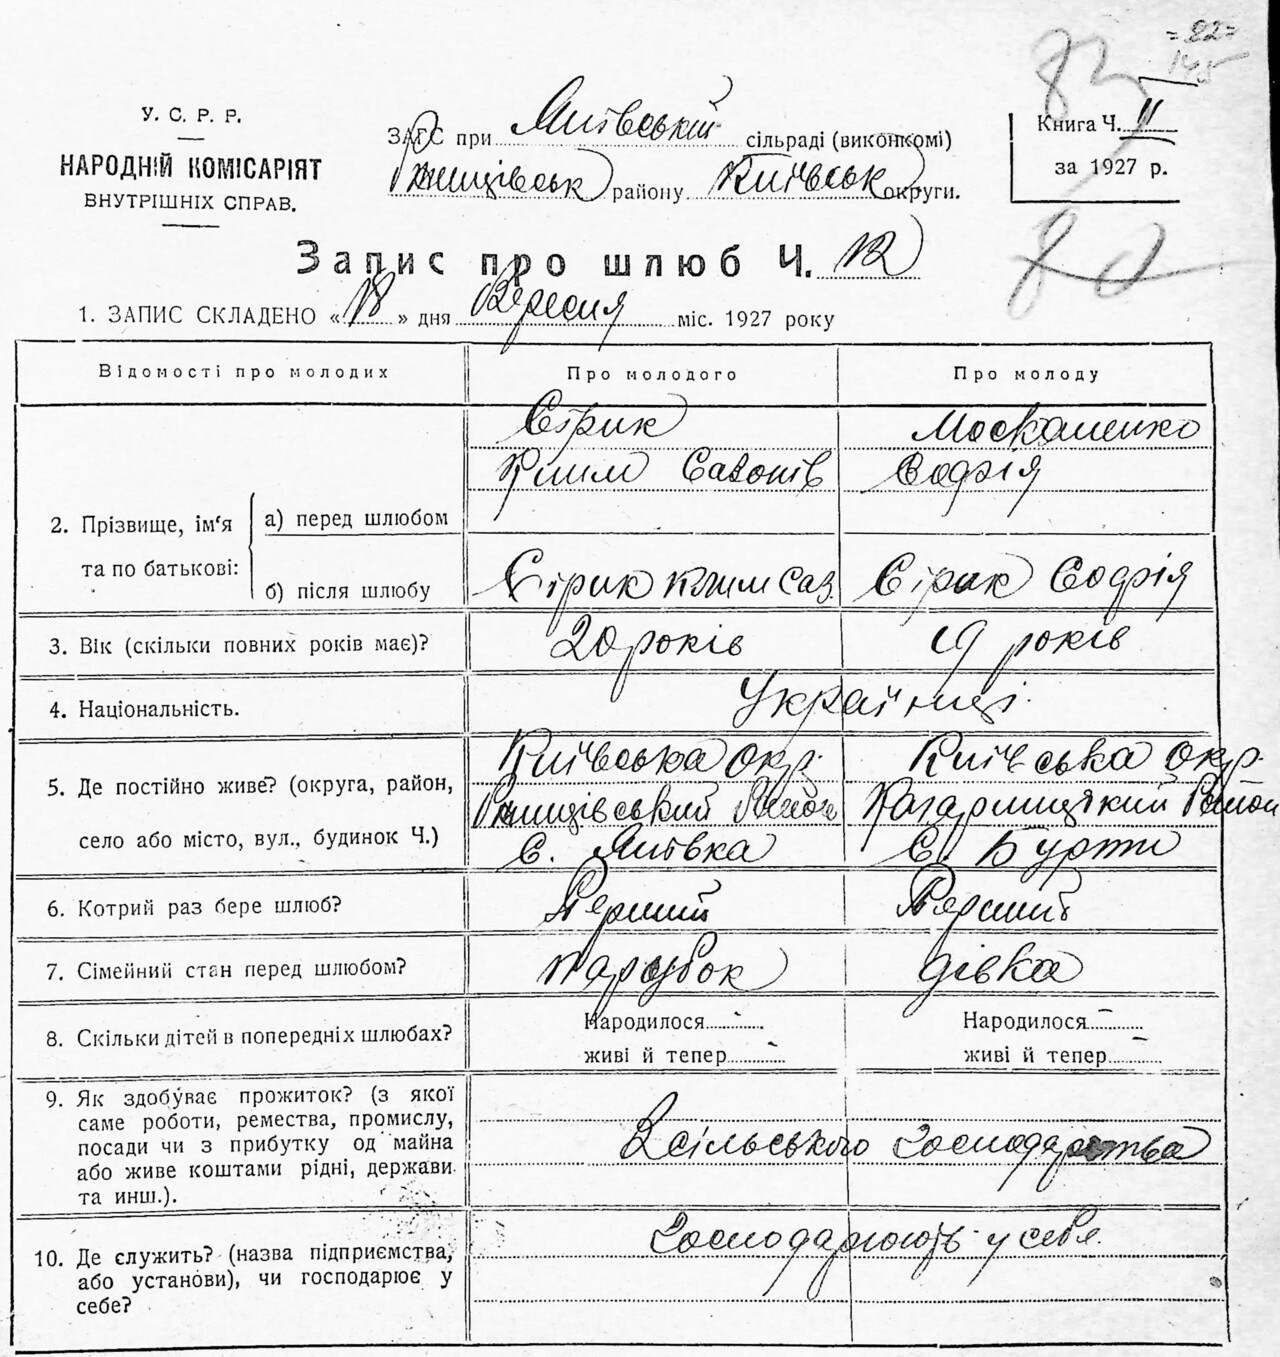 = 82 =
145
82
У. С. Р. Р.
НАРОДНІЙ КОМІСАРІЯТ
ВНУТРІШНІХ СПРАВ.
ЗАГС при Яцівській сільраді (виконкомі)
Ржищівськ району Київськ округи.
Книга Ч. II
за 1927 р.
Запис про шлюб Ч. 12
1. ЗАПИС СКЛАДЕНО « 18 » дня Вересня міс. 1927 року
Відомості про молодих Про молодого Про молоду
Сірик Москаленко
Клим Савонів Софія
2. Прізвище, ім'я та по батькові:
а) перед шлюбом
б) після шлюбу Сірик Клим Сав. Сірик Софія
3. Вік (скільки повних років має)? 20 років 19 років
4. Національність. Українці
5. Де постійно живе? (округа, район, Київська окр. Київська окр.
село або місто, вул., будинок Ч.) Ржищівський Район Кагарлицький Район
с. Яцівка с. Бурти
6. Котрий раз бере шлюб? Перший Перший
7. Сімейний стан перед шлюбом? парубок дівка
8. Скільки дітей в попередніх шлюбах? Народилося - Народилося -
живі й тепер - живі й тепер -
9. Як здобуває прожиток? (з якої
саме роботи, ремества, промислу,
посади чи з прибутку од майна
або живе коштами рідні, держави
та инш.). З сільського господарства
10. Де служить? (назва підприємства,
або установи), чи господарює у
себе? Господарюють у себе